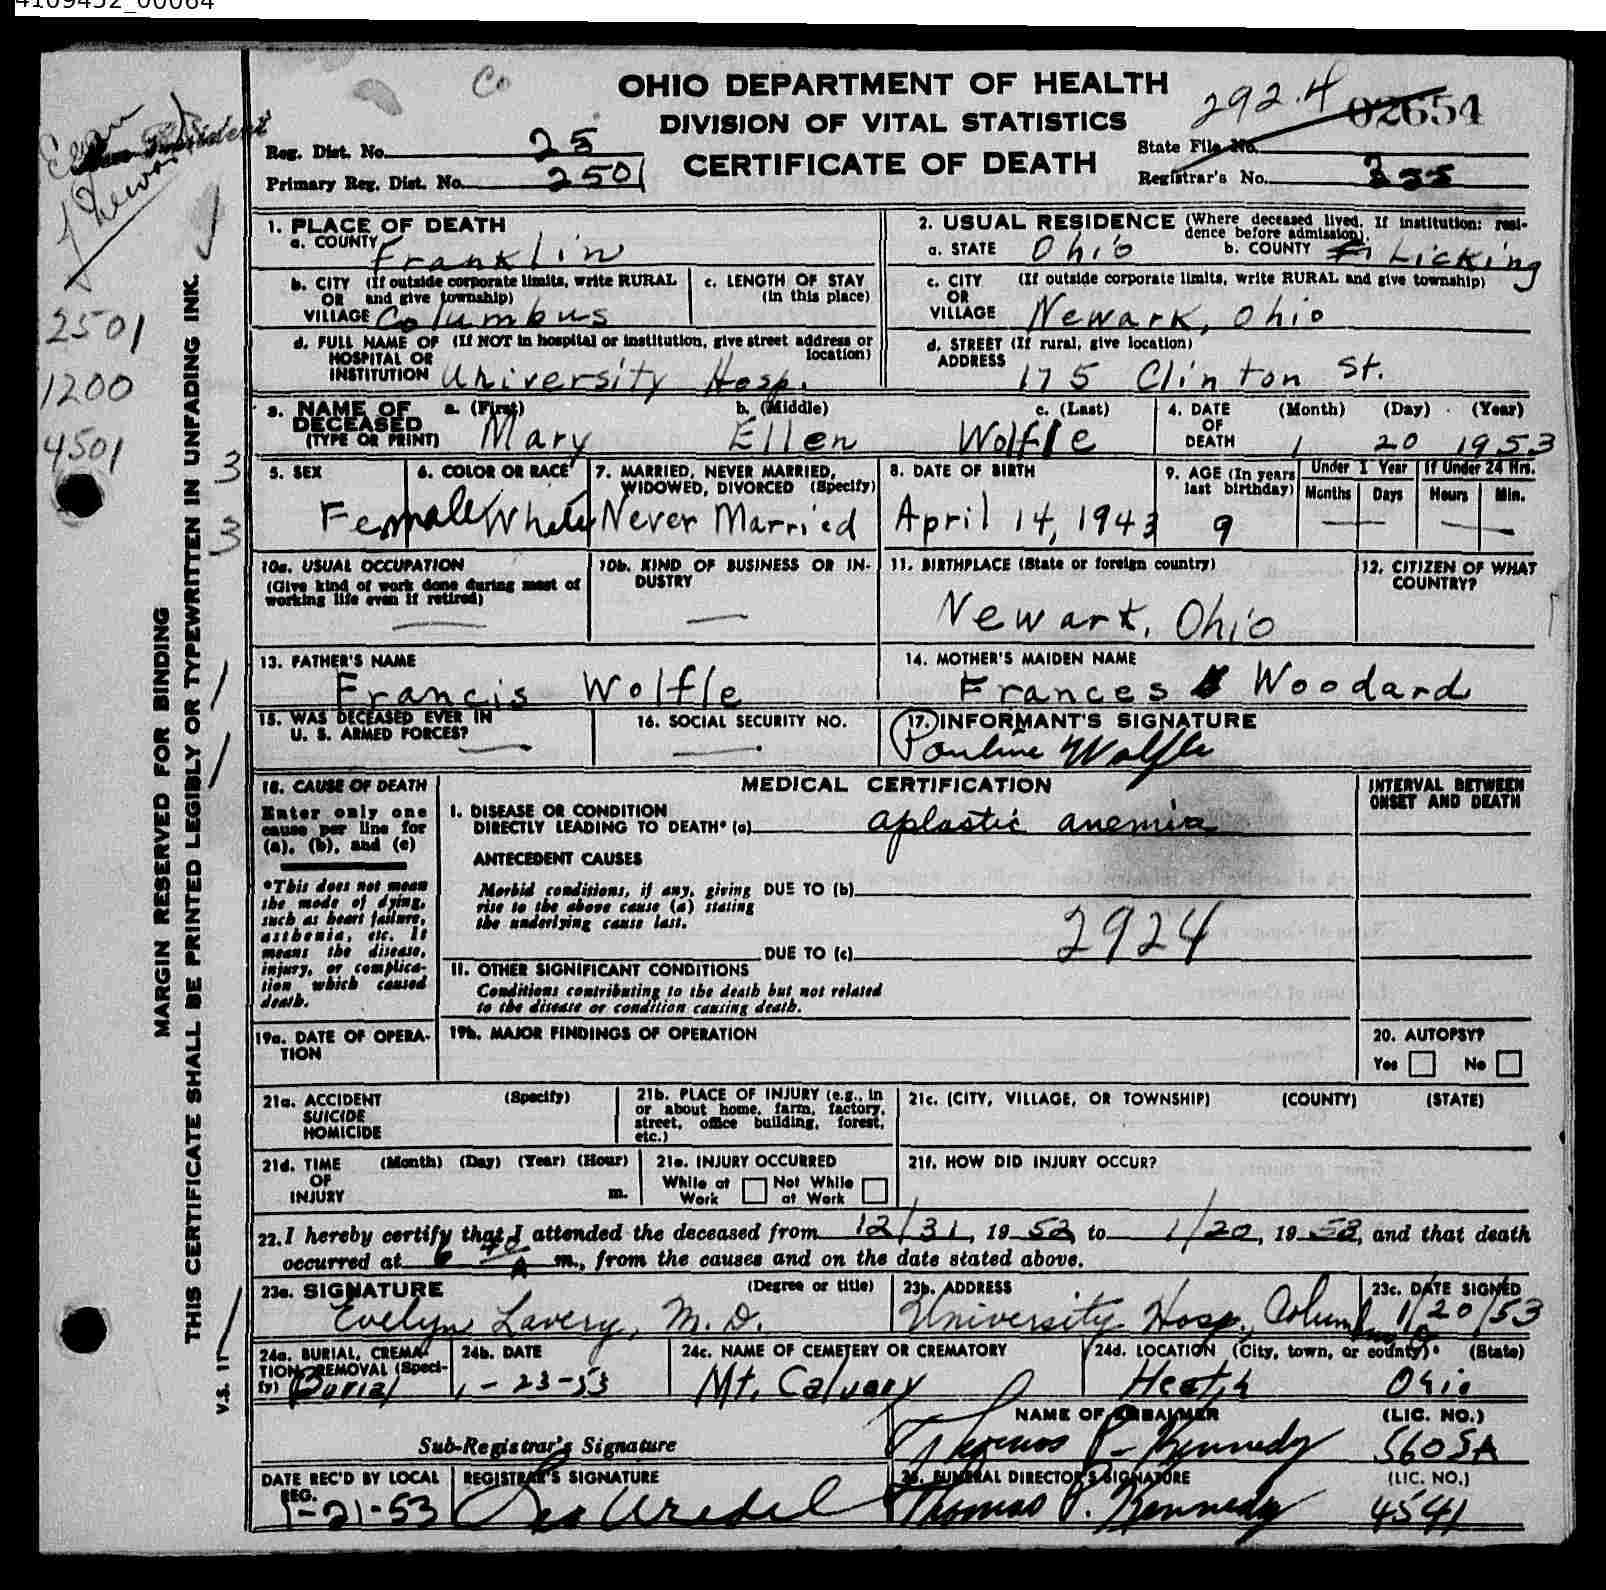 4109452_00064
Co
OHIO DEPARTMENT OF HEALTH
DIVISION OF VITAL STATISTICS
CERTIFICATE OF DEATH
292.4 02654
Reg. Dist. No. 25
Primary Reg. Dist. No. 2501
State File No.
Registrar's No.
2501
1200
4501
3
3
MARGIN RESERVED FOR BINDING
THIS CERTIFICATE SHALL BE PRINTED LEGIBLY OR TYPEWRITTEN IN UNFADING INK.
V.S. 11
1. PLACE OF DEATH
a. COUNTY Franklin
b. CITY (If outside corporate limits, write RURAL
OR and give township)
VILLAGE Columbus
c. LENGTH OF STAY
(in this place)
d. FULL NAME OF (If NOT in hospital or institution, give street address or
HOSPITAL OR location)
INSTITUTION University Hosp.
2. USUAL RESIDENCE (Where deceased lived. If institution: resi-
dence before admission).
a. STATE Ohio b. COUNTY Licking
c. CITY (If outside corporate limits, write RURAL and give township)
OR
VILLAGE Newark, Ohio
d. STREET (If rural, give location)
ADDRESS 175 Clinton St.
3. NAME OF a. (First) b. (Middle) c. (Last)
DECEASED
(TYPE OR PRINT) Mary Ellen Wolfle
4. DATE (Month) (Day) (Year)
OF
DEATH 1 20 1953
5. SEX
Female
6. COLOR OR RACE
White
7. MARRIED, NEVER MARRIED,
WIDOWED, DIVORCED (Specify)
Never Married
8. DATE OF BIRTH
April 14, 1943
9. AGE (In years
last birthday)
9
Under 1 Year
Months Days
If Under 24 Hrs.
Hours Min.
10a. USUAL OCCUPATION
(Give kind of work done during most of
working life even if retired)
10b. KIND OF BUSINESS OR IN-
DUSTRY
11. BIRTHPLACE (State or foreign country)
Newark, Ohio
12. CITIZEN OF WHAT
COUNTRY?
13. FATHER'S NAME
Francis Wolfle
14. MOTHER'S MAIDEN NAME
Frances Woodard
15. WAS DECEASED EVER IN
U. S. ARMED FORCES?
16. SOCIAL SECURITY NO.
17. INFORMANT'S SIGNATURE
Pauline Wolfle
18. CAUSE OF DEATH
Enter only one
cause per line for
(a), (b), and (c)
*This does not mean
the mode of dying,
such as heart failure,
asthenia, etc. It
means the disease,
injury, or complica-
tion which caused
death.
MEDICAL CERTIFICATION
I. DISEASE OR CONDITION
DIRECTLY LEADING TO DEATH* (a) aplastic anemia
ANTECEDENT CAUSES
Morbid conditions, if any, giving DUE TO (b)
rise to the above cause (a) stating
the underlying cause last.
2924
DUE TO (c)
II. OTHER SIGNIFICANT CONDITIONS
Conditions contributing to the death but not related
to the disease or condition causing death.
INTERVAL BETWEEN
ONSET AND DEATH
19a. DATE OF OPERA-
TION
19b. MAJOR FINDINGS OF OPERATION
20. AUTOPSY?
Yes No
21a. ACCIDENT (Specify)
SUICIDE
HOMICIDE
21b. PLACE OF INJURY (e.g., in
or about home, farm, factory,
street, office building, forest,
etc.)
21c. (CITY, VILLAGE, OR TOWNSHIP) (COUNTY) (STATE)
21d. TIME (Month) (Day) (Year) (Hour)
OF
INJURY m.
21e. INJURY OCCURRED
While at Not While
Work at Work
21f. HOW DID INJURY OCCUR?
22. I hereby certify that I attended the deceased from 12/31, 1952 to 1/20, 1953, and that death
occurred at 6 40 A m., from the causes and on the date stated above.
23a. SIGNATURE (Degree or title)
Evelyn Lavery, M.D.
23b. ADDRESS
University Hosp., Columbus, O.
23c. DATE SIGNED
1/20/53
24a. BURIAL, CREMA-
TION, REMOVAL (Speci-
fy) Burial
24b. DATE
1-23-53
24c. NAME OF CEMETERY OR CREMATORY
Mt. Calvary
24d. LOCATION (City, town, or county) (State)
Heath Ohio
Sub-Registrar's Signature
NAME OF EMBALMER (LIC. NO.)
Thomas P. Kennedy 5605A
DATE REC'D BY LOCAL
REG.
1-21-53
REGISTRAR'S SIGNATURE
25. FUNERAL DIRECTOR'S SIGNATURE (LIC. NO.)
Thomas P. Kennedy 4541